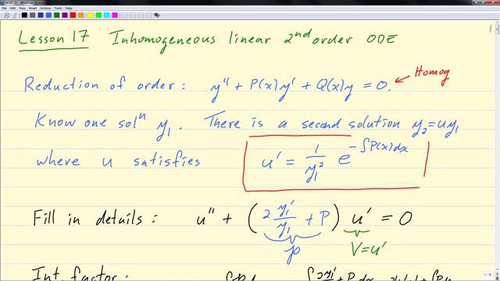 Lesson 17 Inhomogeneous linear 2nd order ODE
Reduction of order: y'' + P(x)y' + Q(x)y = 0. ← Homog
Know one solⁿ y₁. There is a second solution y₂=uy₁
where u satisfies u' = 1/y₁² e^(-∫P(x)dx)
Fill in details: u'' + (2 y₁'/y₁ + P) u' = 0
p V=u'
Int. factor: